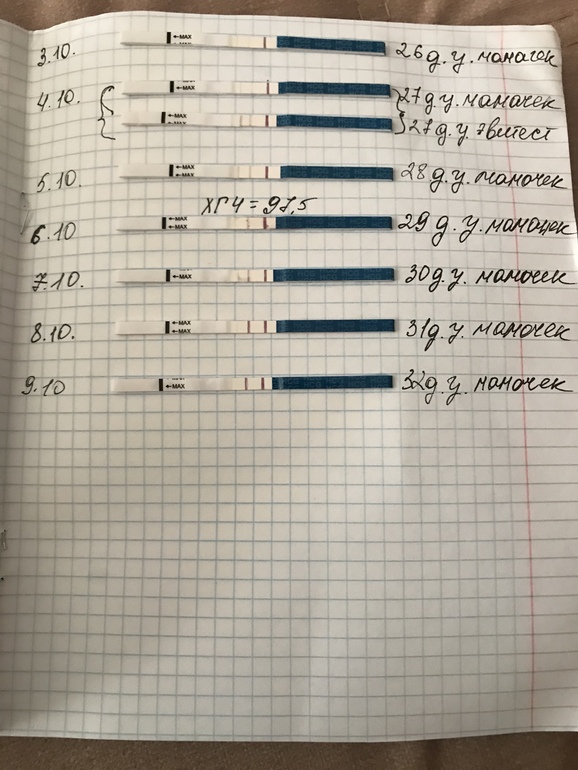 3.10. ←MAX 26 д.у. мамочек
4.10. ←MAX 27 д.у. мамочек
←MAX 27 д.у. эвтест
5.10. ←MAX 28 д.у. мамочек
ХГЧ = 97,5
6.10 ←MAX 29 д.у. мамочек
7.10. ←MAX 30 д.у. мамочек
8.10. ←MAX 31 д.у. мамочек
9.10 ←MAX 32 д.у. мамочек